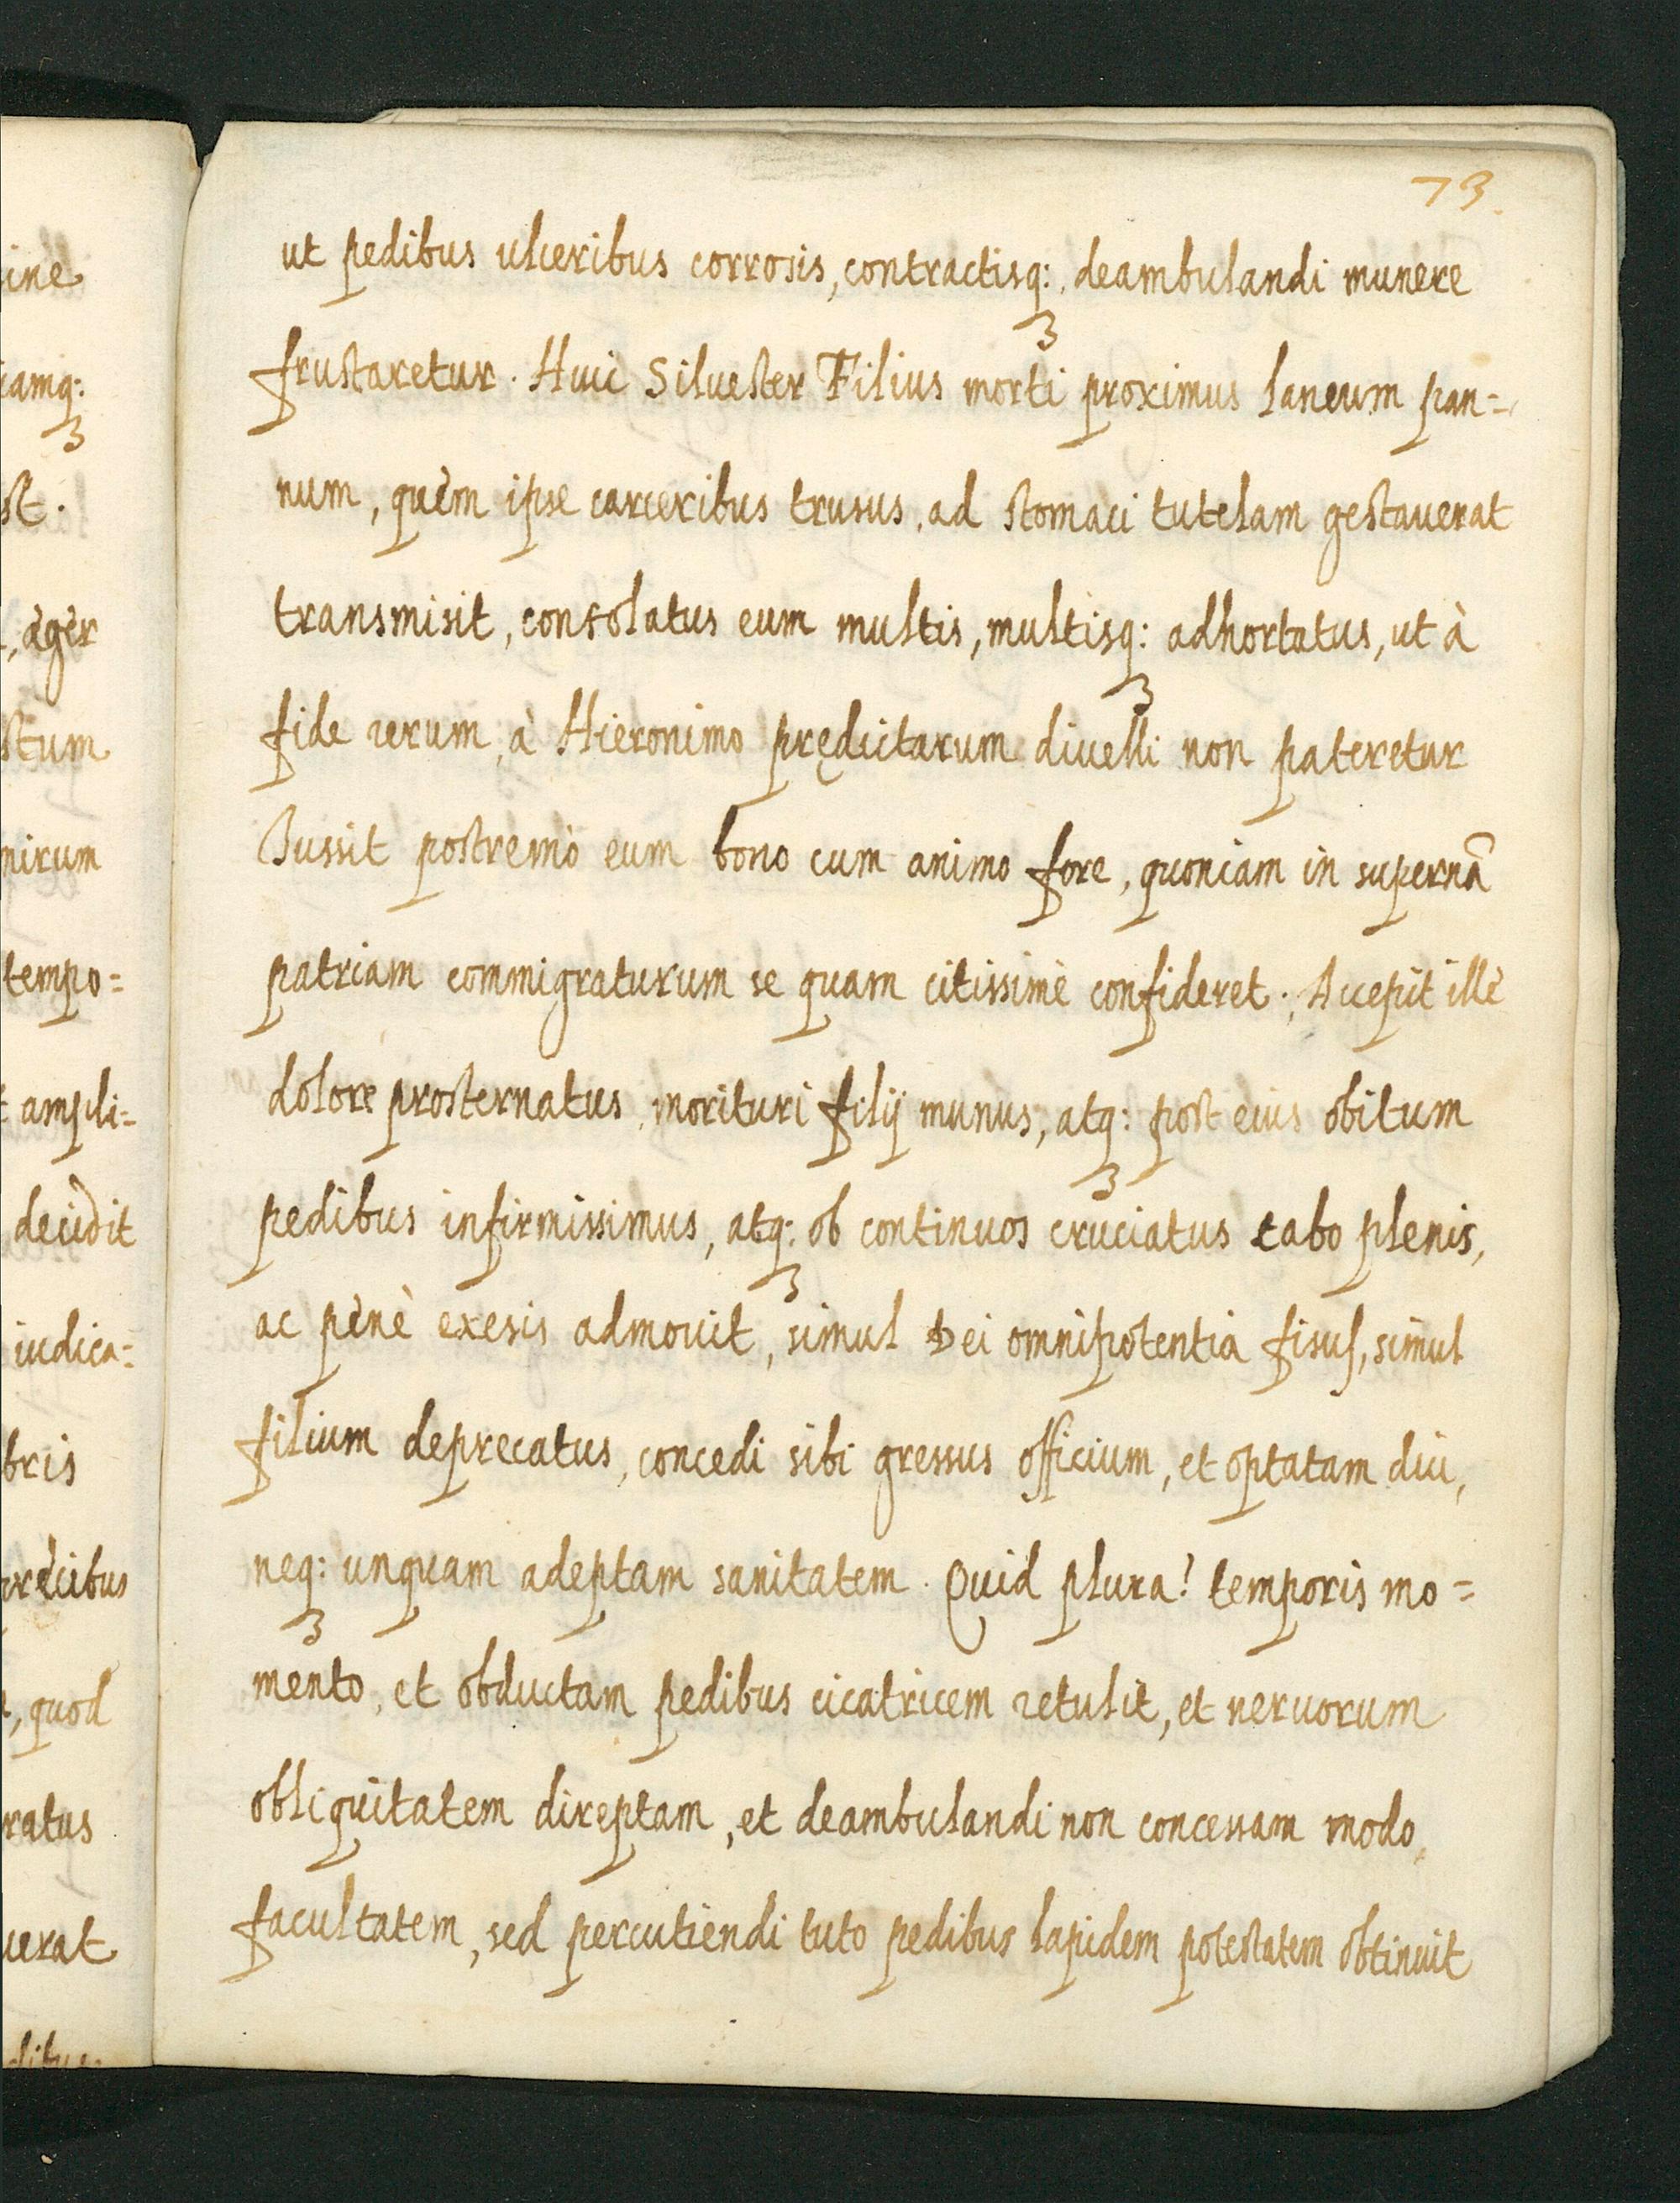 73.
ut pedibus ulceribus corrosis, contractisq: deambulandi munere
frustaretur. Huic Siluester Filius morti proximus laneum pan=
num, quem ipse carceribus trusus, ad stomaci tutelam gestauerat
transmisit, consolatus eum multis, multisq: adhortatus, ut à
fide rerum, à Hieronimo prędictarum diuelli non pateretur
Iussit postremò eum bono cum animo fore, quoniam in supernā
patriam commigraturum se quam citissimè confideret. Accepit ille
dolore prosternatus, morituri filij munus, atq: post eius obitum
pedibus infirmissimus, atq: ob continuos cruciatus tabo plenis,
ac penè exesis admouit, simul Dei omnipotentia fisus, simul
filium deprecatus, concedi sibi gressus officium, et optatam diu,
neq: unquam adeptam sanitatem. Quid plura? temporis mo=
mento, et obductam pedibus cicatricem retulit, et neruorum
obliquitatem direptam, et deambulandi non concessam modo,
facultatem, sed percutiendi tuto pedibus lapidem potestatem obtinuit
ine
iamq:
st.
, ager
stum
nirum
tempo=
ampli=
decidit
iudica=
bris
precibus
, quod
ratus
uerat